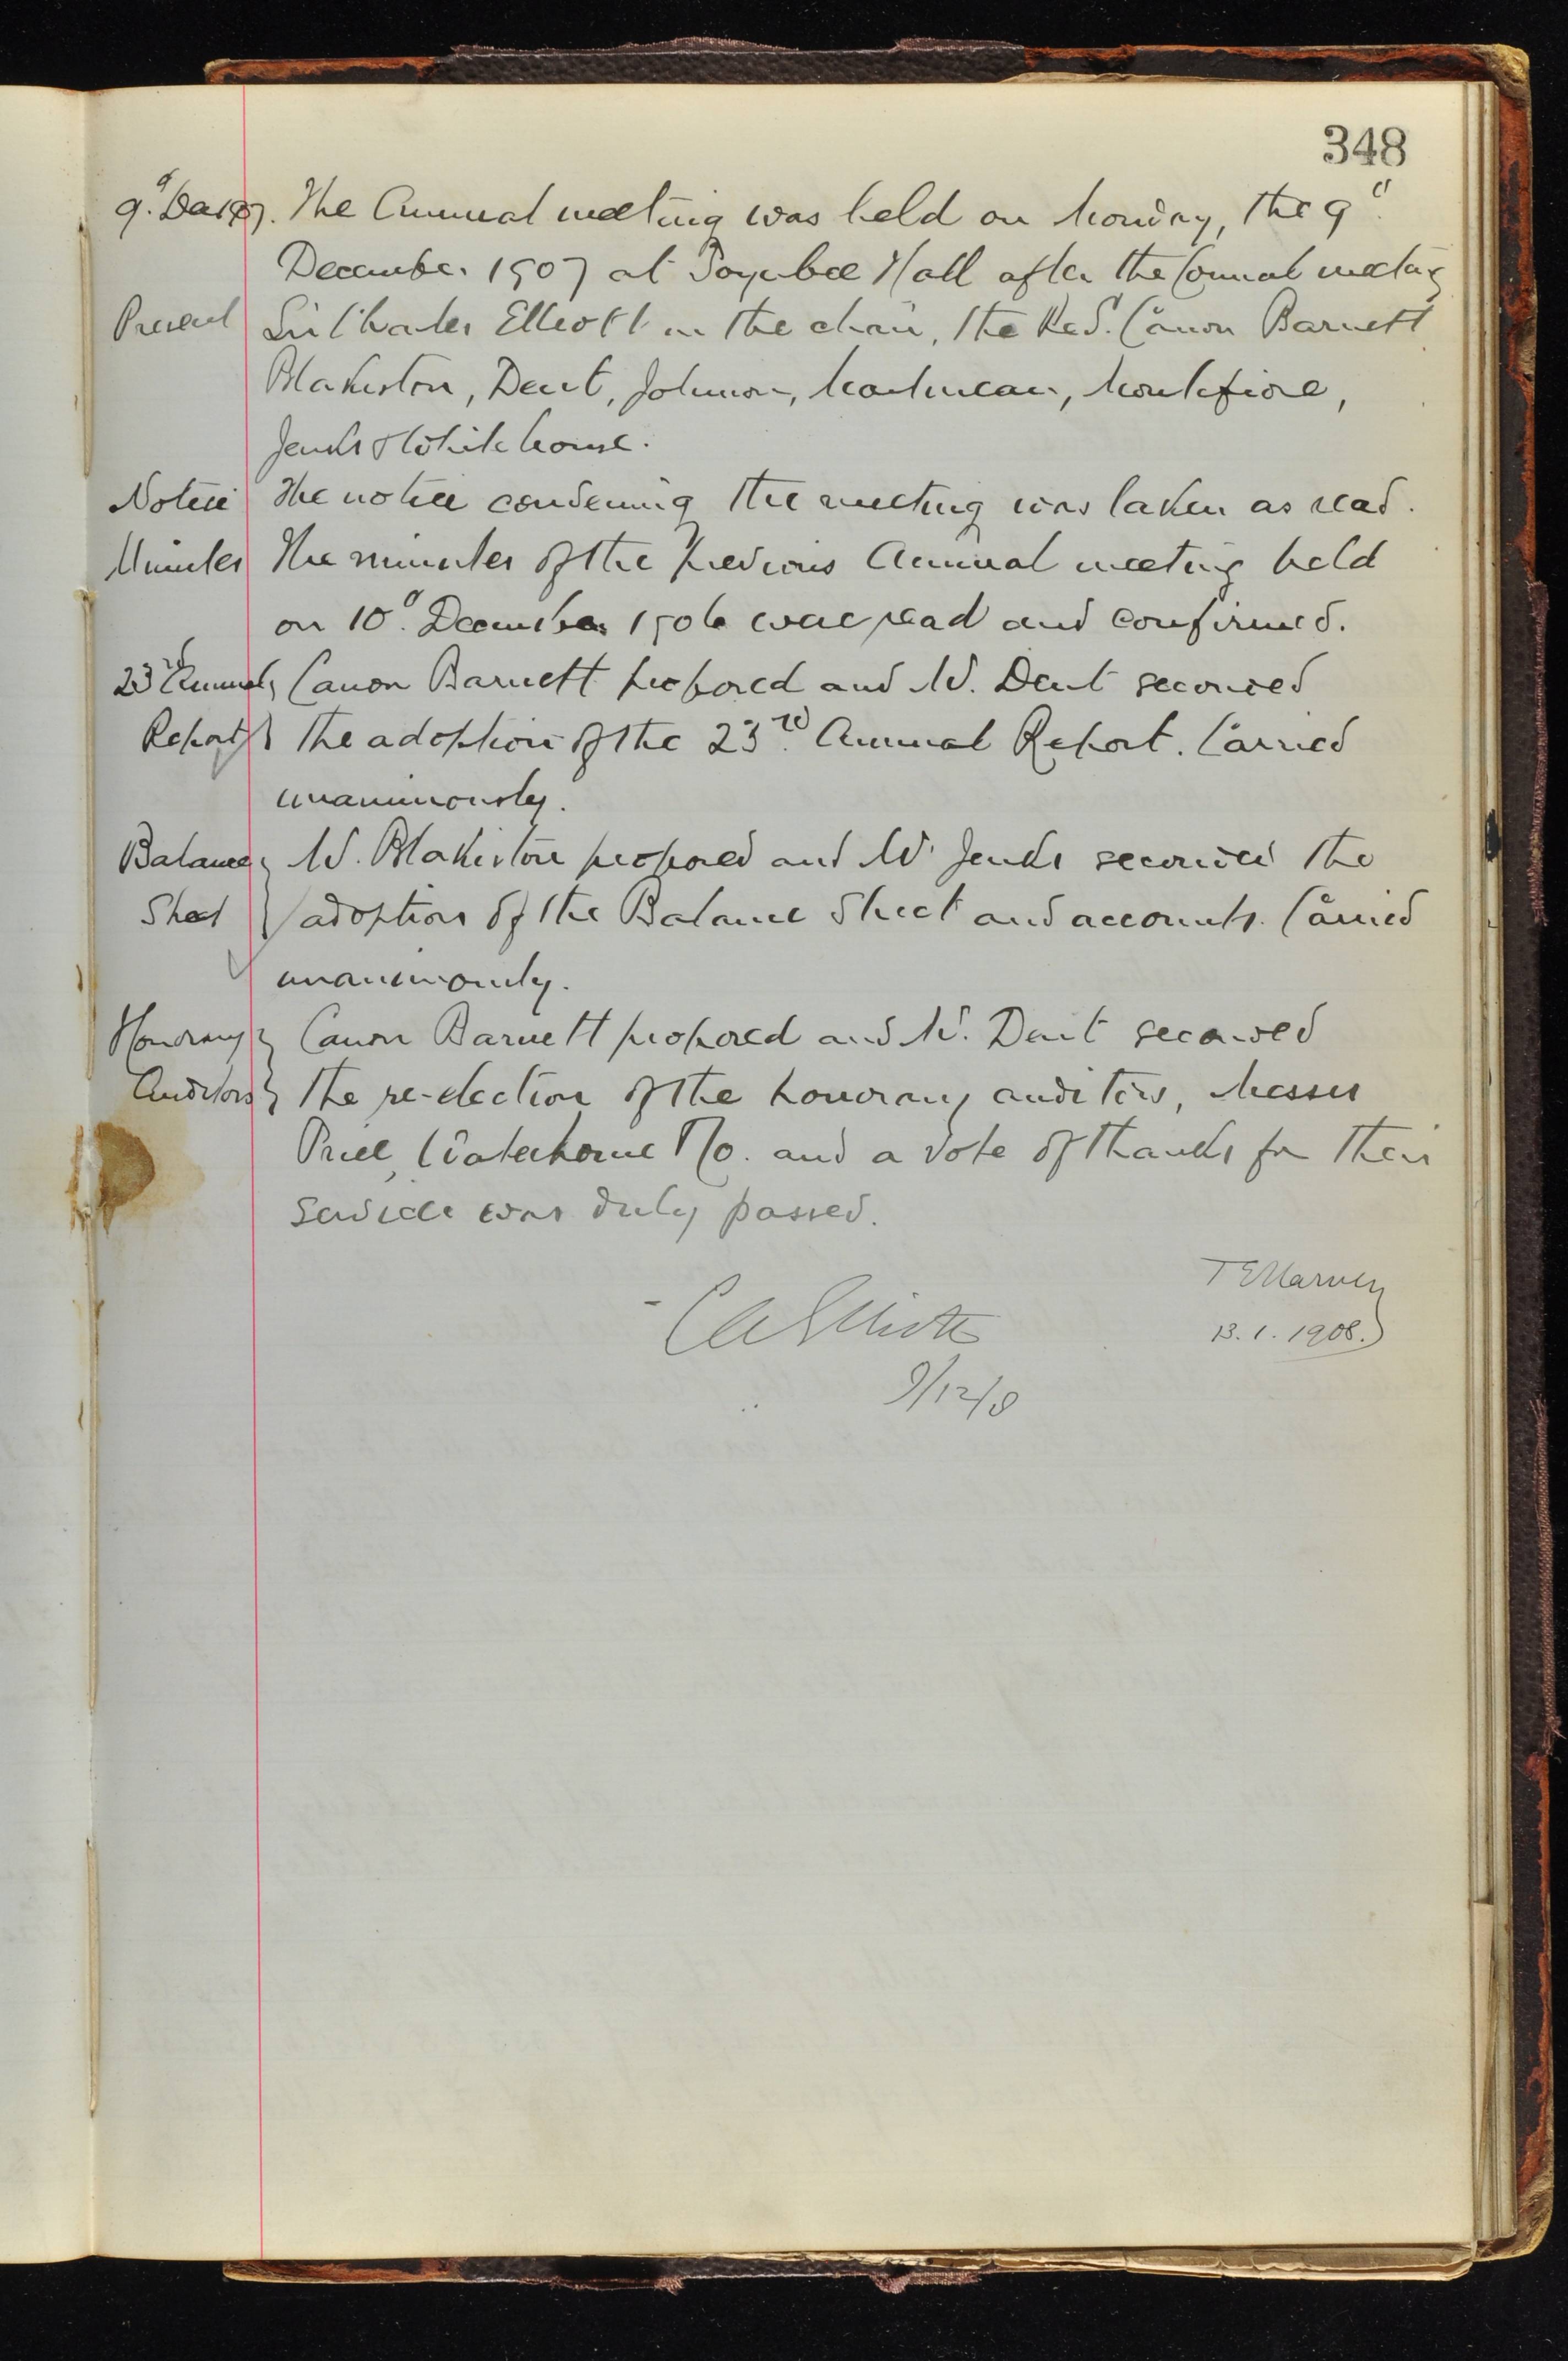 348
9th Dec 1907. The Annual meeting was held on Monday, the 9th
December 1907 at Toynbee Hall after the Council meeting
Present Sir Charles Elliott in the chair, the Rev. Canon Barnett
Blakiston, Dent, Johnson, Martineau, Montefiore,
Jenks & Whitehouse.
Notice The notice convening the meeting was taken as read.
Minutes The minutes of the previous Annual meeting held
on 10th December 1906 were read and confirmed.
23rd Annual Canon Barnett proposed and Mr. Dent seconded
Report the adoption of the 23rd Annual Report. Carried
unanimously.
Balance Mr. Blakiston proposed and Mr Jenks seconded the
Sheet adoption of the Balance Sheet and accounts. Carried
unanimously.
Honorary Canon Barnett proposed and Mr. Dent seconded
Auditors the re-election of the honorary auditors, Messrs
Price, Waterhouse & Co. and a vote of thanks for their
service was duly passed.
T E Harvey
CA Elliott
13. 1. 1908.
9/12/8